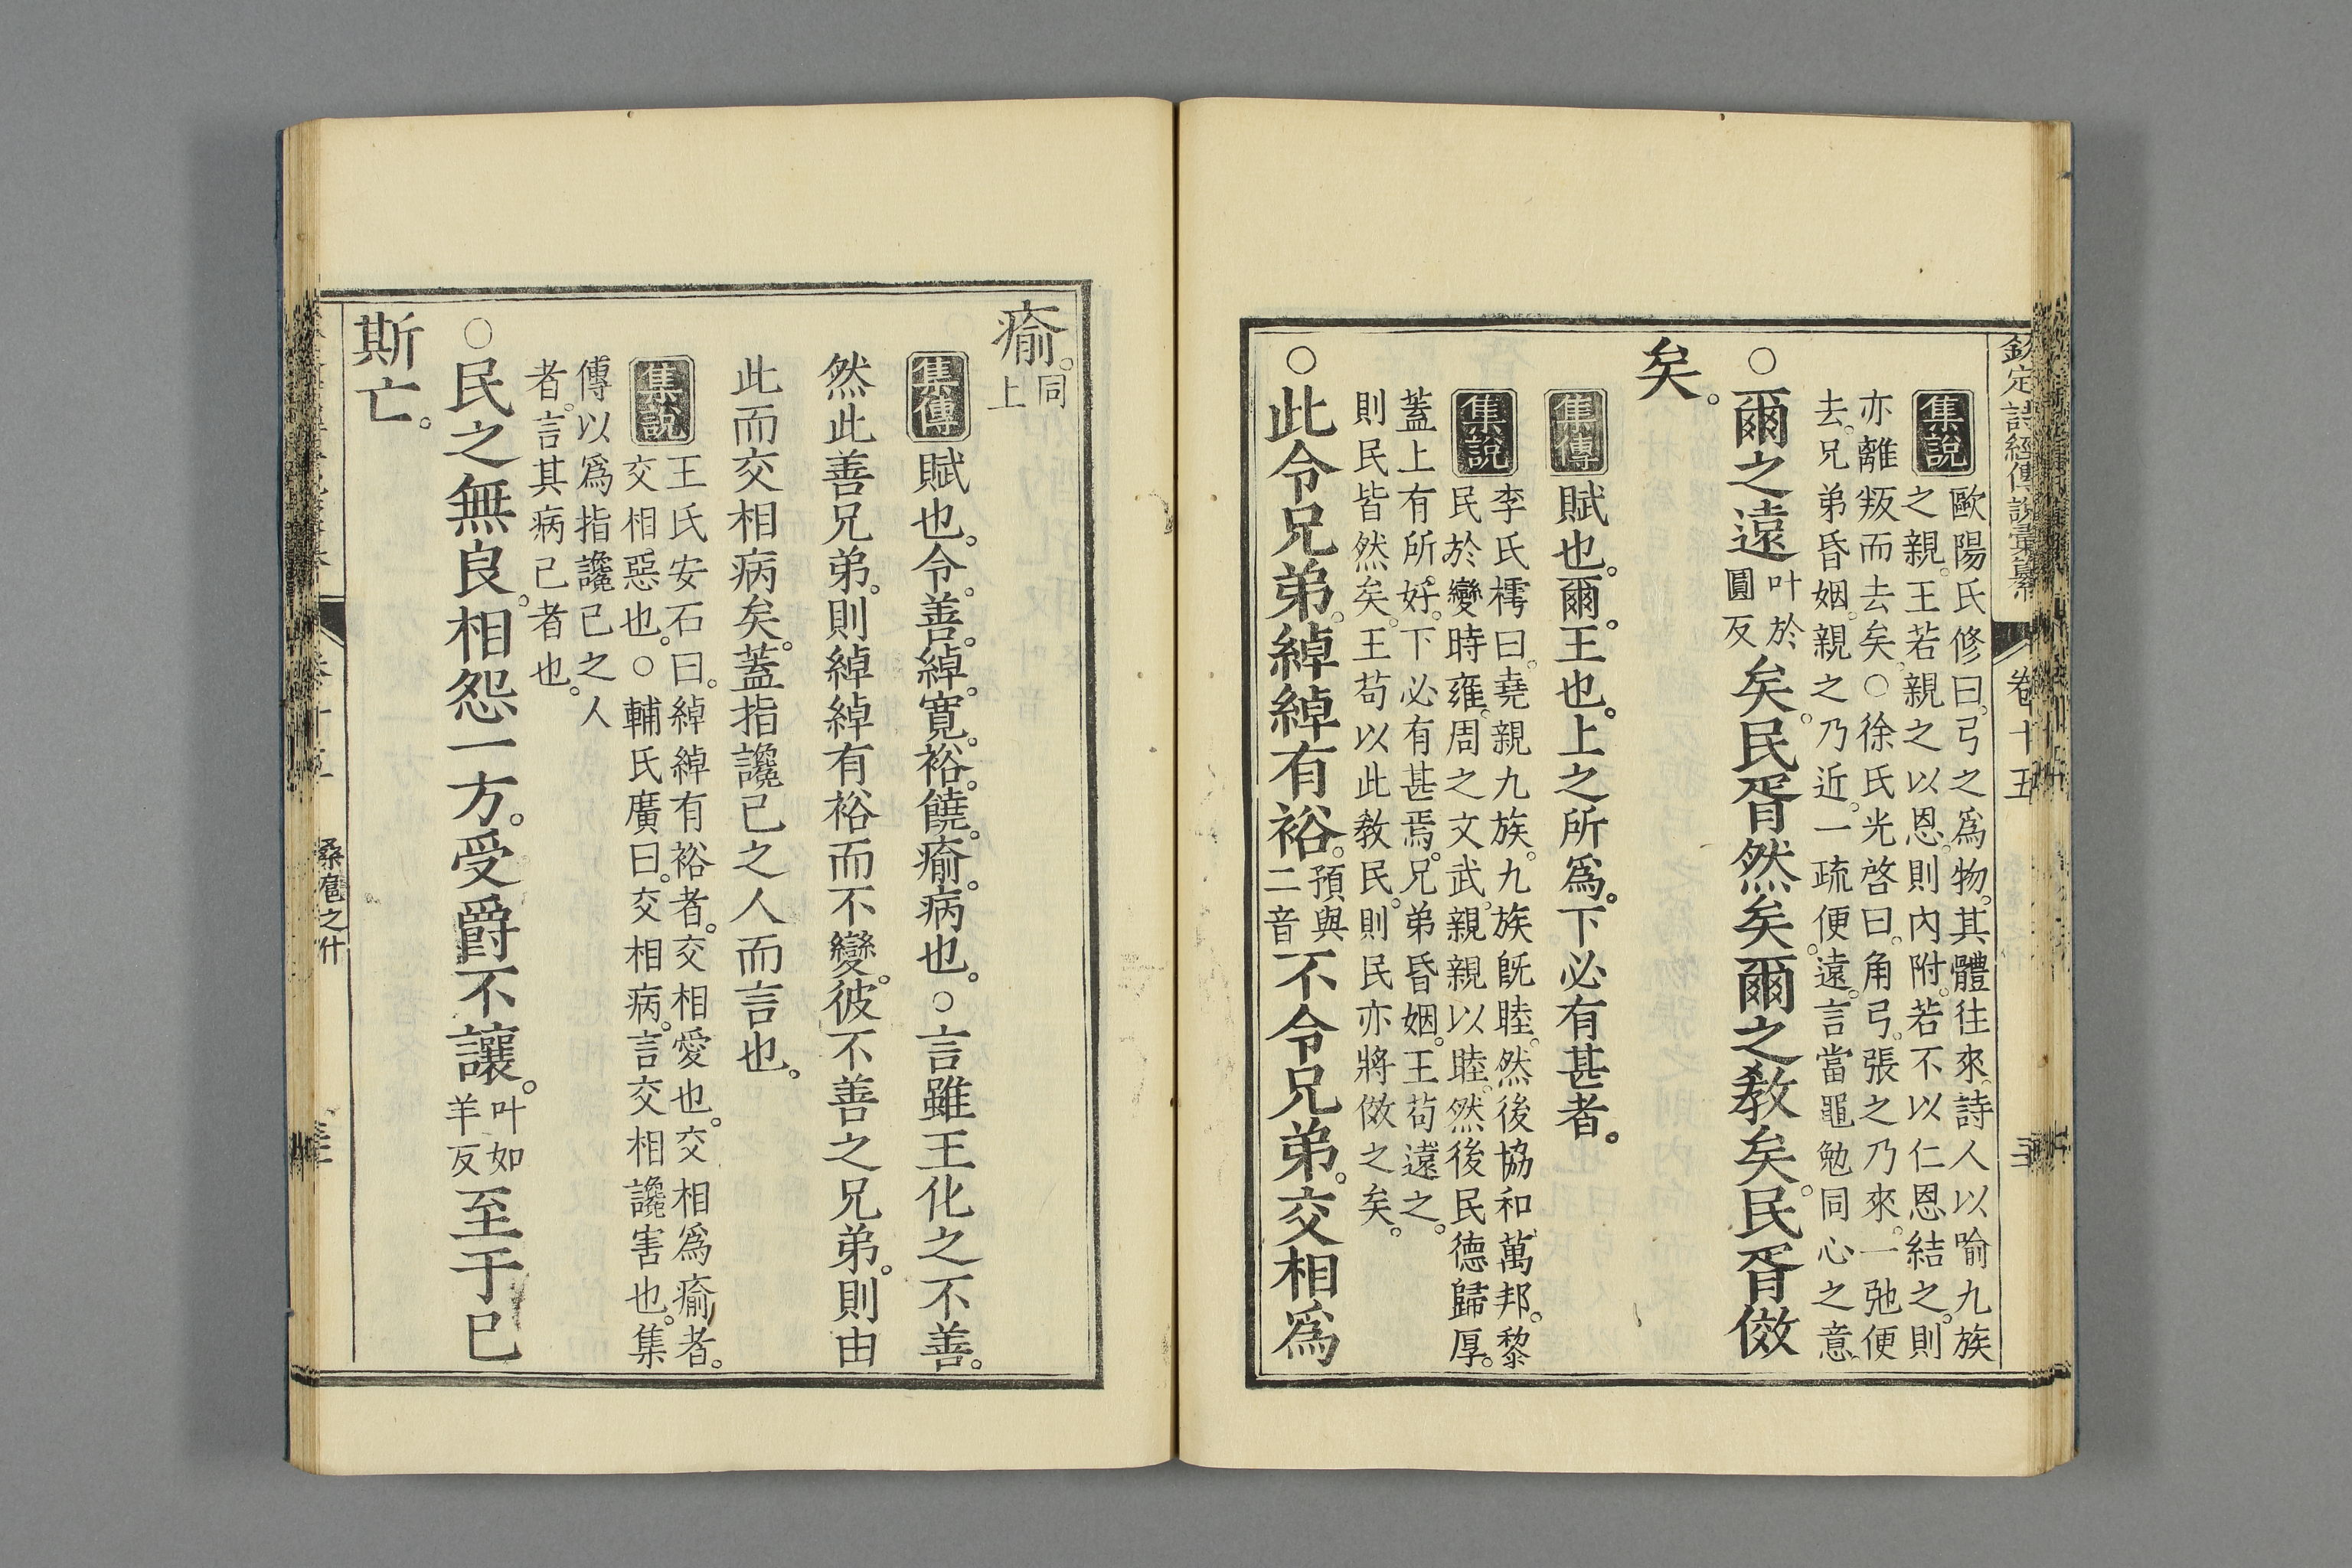 欽定詩經傳說彙纂 卷十五
集說 歐陽氏修曰。弓之爲物。其體往來。詩人以喻九族
之親。王若親之以恩。則內附。若不以仁恩結之。則
亦離叛而去矣。○徐氏光啓曰。角弓。張之乃來。一弛便
去。兄弟昏姻。親之乃近。一疏便遠。言當黽勉同心之意。
○爾之遠叶於圓反矣。民胥然矣。爾之教矣。民胥傚
矣。
集傳 賦也。爾。王也。上之所爲。下必有甚者。
集說 李氏樗曰。堯親九族。九族旣睦。然後協和萬邦。黎
民於變時雍。周之文武。親親以睦。然後民德歸厚。
蓋上有所好。下必有甚焉。兄弟昏姻。王苟遠之。
則民皆然矣。王苟以此教民。則民亦將傚之矣。
○此令兄弟。綽綽有裕。預與二音不令兄弟。交相爲
瘉。同上
集傳 賦也。令。善。綽。寬。裕。饒。瘉。病也。○言雖王化之不善。
然此善兄弟。則綽綽有裕而不變。彼不善之兄弟。則由
此而交相病矣。蓋指讒己之人而言也。
集說 王氏安石曰。綽綽有裕者。交相愛也。交相爲瘉者。
交相惡也。○輔氏廣曰。交相病。言交相讒害也。集
傳以爲指讒己之人
者。言其病己者也。
○民之無良。相怨一方。受爵不讓。叶如羊反至于已
斯亡。
桑扈之什